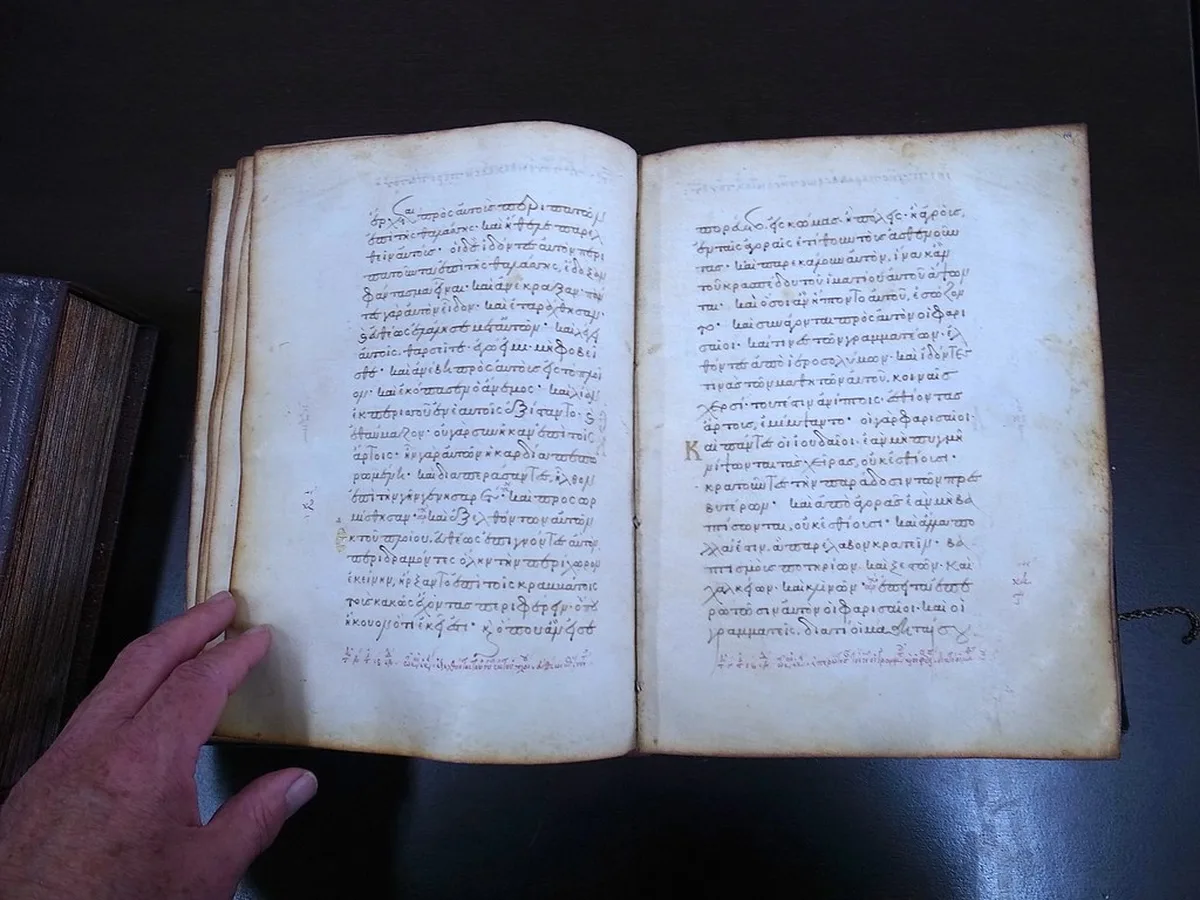 ἔρχεται πρὸς αὐτοὺς περιπατῶν
ἐπὶ τῆς θαλάσσης· καὶ ἤθελε παρελ
θεῖν αὐτούς· οἱ δὲ ἰδόντες αὐτὸν περι
πατοῦντα ἐπὶ τῆς θαλάσσης, ἔδοξαν
φάντασμα εἶναι· καὶ ἀνέκραξαν· πάν
τες γὰρ αὐτὸν εἶδον· καὶ ἐταράχθησαν·
καὶ εὐθέως ἐλάλησε μετ' αὐτῶν· καὶ λέγει
αὐτοῖς· θαρσεῖτε· ἐγώ εἰμι· μὴ φοβεῖ
σθε· καὶ ἀνέβη πρὸς αὐτοὺς εἰς τὸ πλοῖ
ον· καὶ ἐκόπασεν ὁ ἄνεμος· καὶ λίαν
ἐκ περισσοῦ ἐν ἑαυτοῖς ἐξίσταντο· καὶ
ἐθαύμαζον· οὐ γὰρ συνῆκαν ἐπὶ τοῖς
ἄρτοις· ἦν γὰρ αὐτῶν ἡ καρδία πεπω
ρωμένη· καὶ διαπεράσαντες, ἦλθον
ἐπὶ τὴν γῆν γενησαρέτ· καὶ προσωρ
μίσθησαν· καὶ ἐξελθόντων αὐτῶν
ἐκ τοῦ πλοίου, εὐθέως ἐπιγνόντες αὐτὸν
περιδραμόντες ὅλην τὴν περίχωρον
ἐκείνην, ἤρξαντο ἐπὶ τοῖς κραββάτοις
τοὺς κακῶς ἔχοντας περιφέρειν· ὅπου
ἤκουον ὅτι ἐκεῖ ἐστι· καὶ ὅπου ἂν εἰσε
πορεύετο εἰς κώμας ἢ πόλεις· ἢ ἀγρούς,
ἐν ταῖς ἀγοραῖς ἐτίθουν τοὺς ἀσθενοῦν
τας· καὶ παρεκάλουν αὐτὸν, ἵνα κἂν
τοῦ κρασπέδου τοῦ ἱματίου αὐτοῦ ἅψων
ται· καὶ ὅσοι ἂν ἥπτοντο αὐτοῦ, ἐσώζον
το· καὶ συνάγονται πρὸς αὐτὸν οἱ φαρι
σαῖοι· καί τινες τῶν γραμματέων· ἐλ
θόντες ἀπὸ ἱεροσολύμων· καὶ ἰδόντες
τινὰς τῶν μαθητῶν αὐτοῦ, κοιναῖς
χερσὶ· τουτέστιν ἀνίπτοις· ἐσθίοντας
ἄρτους, ἐμέμψαντο· οἱ γὰρ φαρισαῖοι·
Καὶ πάντες οἱ ἰουδαῖοι· ἐὰν μὴ πυγμῇ
νίψωνται τὰς χεῖρας, οὐκ ἐσθίουσι·
κρατοῦντες τὴν παράδοσιν τῶν πρε
σβυτέρων· καὶ ἀπὸ ἀγορᾶς ἐὰν μὴ βα
πτίσωνται, οὐκ ἐσθίουσι· καὶ ἄλλα πο
λλά ἐστιν, ἃ παρέλαβον κρατεῖν· βα
πτισμοὺς ποτηρίων· καὶ ξεστῶν· καὶ
χαλκίων· καὶ κλινῶν· ἔπειτα ἐπε
ρωτῶσιν αὐτὸν οἱ φαρισαῖοι· καὶ οἱ
γραμματεῖς· διατί οἱ μαθηταί σου